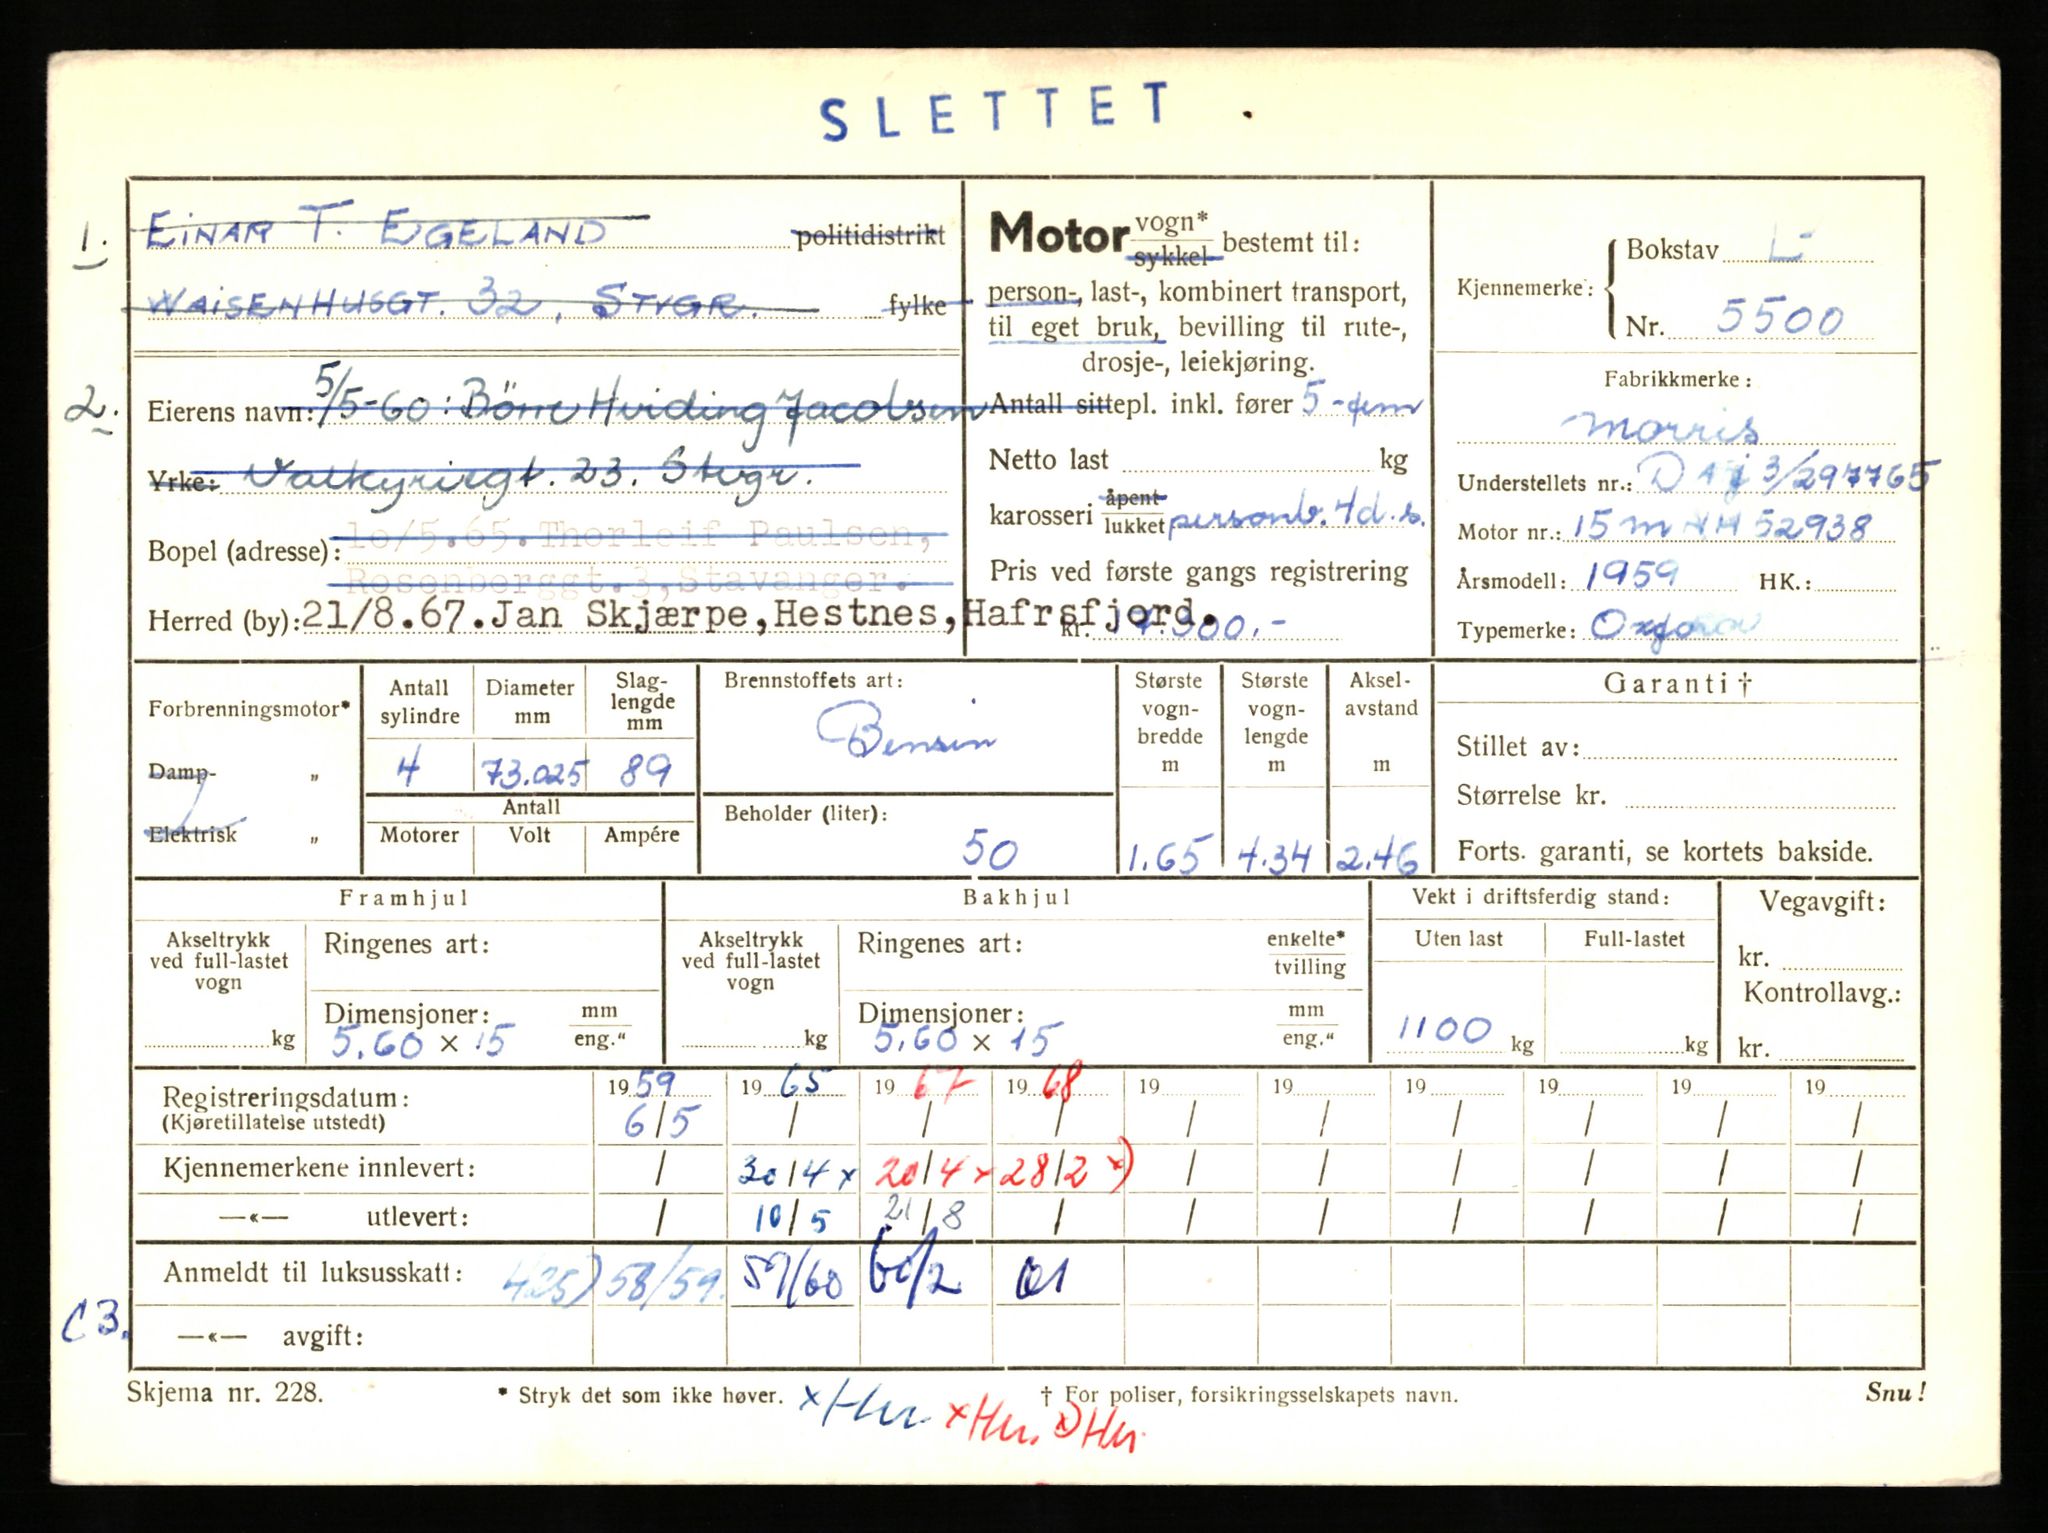 SLETTET
1. EINAR T. EGELAND politidistrikt
WAISENHUSGT. 32, STVGR. fylke
2. Eierens navn: 5/5-60: Börre Hviding Jacobsen
Yrke: Valkyriegt. 23. Stvgr.
Bopel (adresse): 10/5.65. Thorleif Paulsen,
Rosenberggt.3, Stavanger.
Herred (by): 21/8.67. Jan Skjærpe, Hestnes, Hafrsfjord.
Motor vogn* / sykkel bestemt til:
person-, last-, kombinert transport,
til eget bruk, bevilling til rute-,
drosje-, leiekjøring.
Antall sittepl. inkl. fører 5 - fem
Netto last kg
karosseri åpent / lukket personb. 4d. s.
Pris ved første gangs registrering
kr. 300.-
Kjennemerke: Bokstav L-
Nr. 5500
Fabrikkmerke:
Morris
Understellets nr.: 3/297765
Motor nr.: 15 M 52938
Årsmodell: 1959 HK.:
Typemerke: Oxford
Forbrenningsmotor*
Damp- „
Elektrisk „
Antall sylindre Diameter mm Slag-lengde mm
4 73.025 89
Antall
Motorer Volt Ampére
Brennstoffets art:
Bensin
Beholder (liter):
50
Største vogn-bredde m Største vogn-lengde m Aksel-avstand m
1.65 4.34 2.46
Garanti †
Stillet av:
Størrelse kr.
Forts. garanti, se kortets bakside.
Framhjul
Akseltrykk ved full-lastet vogn
kg
Ringenes art:
Dimensjoner: mm / eng."
5.60 x 15
Bakhjul
Akseltrykk ved full-lastet vogn
kg
Ringenes art: enkelte* / tvilling
Dimensjoner: mm / eng."
5.60 x 15
Vekt i driftsferdig stand:
Uten last Full-lastet
1100 kg kg
Vegavgift:
kr.
Kontrollavg.:
kr.
Registreringsdatum: 1959 1965 1967 1968 19 19 19 19 19 19
(Kjøretillatelse utstedt) 6/5 / / / / / / / / /
Kjennemerkene innlevert: / 30/4 x 20/4 x 28/2 x) / / / / / /
—«— utlevert: / 10/5 21/8 / / / / / / /
Anmeldt til luksusskatt: 425) 58/59. 59/60 61
—«— avgift:
Skjema nr. 228. * Stryk det som ikke høver. † For poliser, forsikringsselskapets navn. Snu!